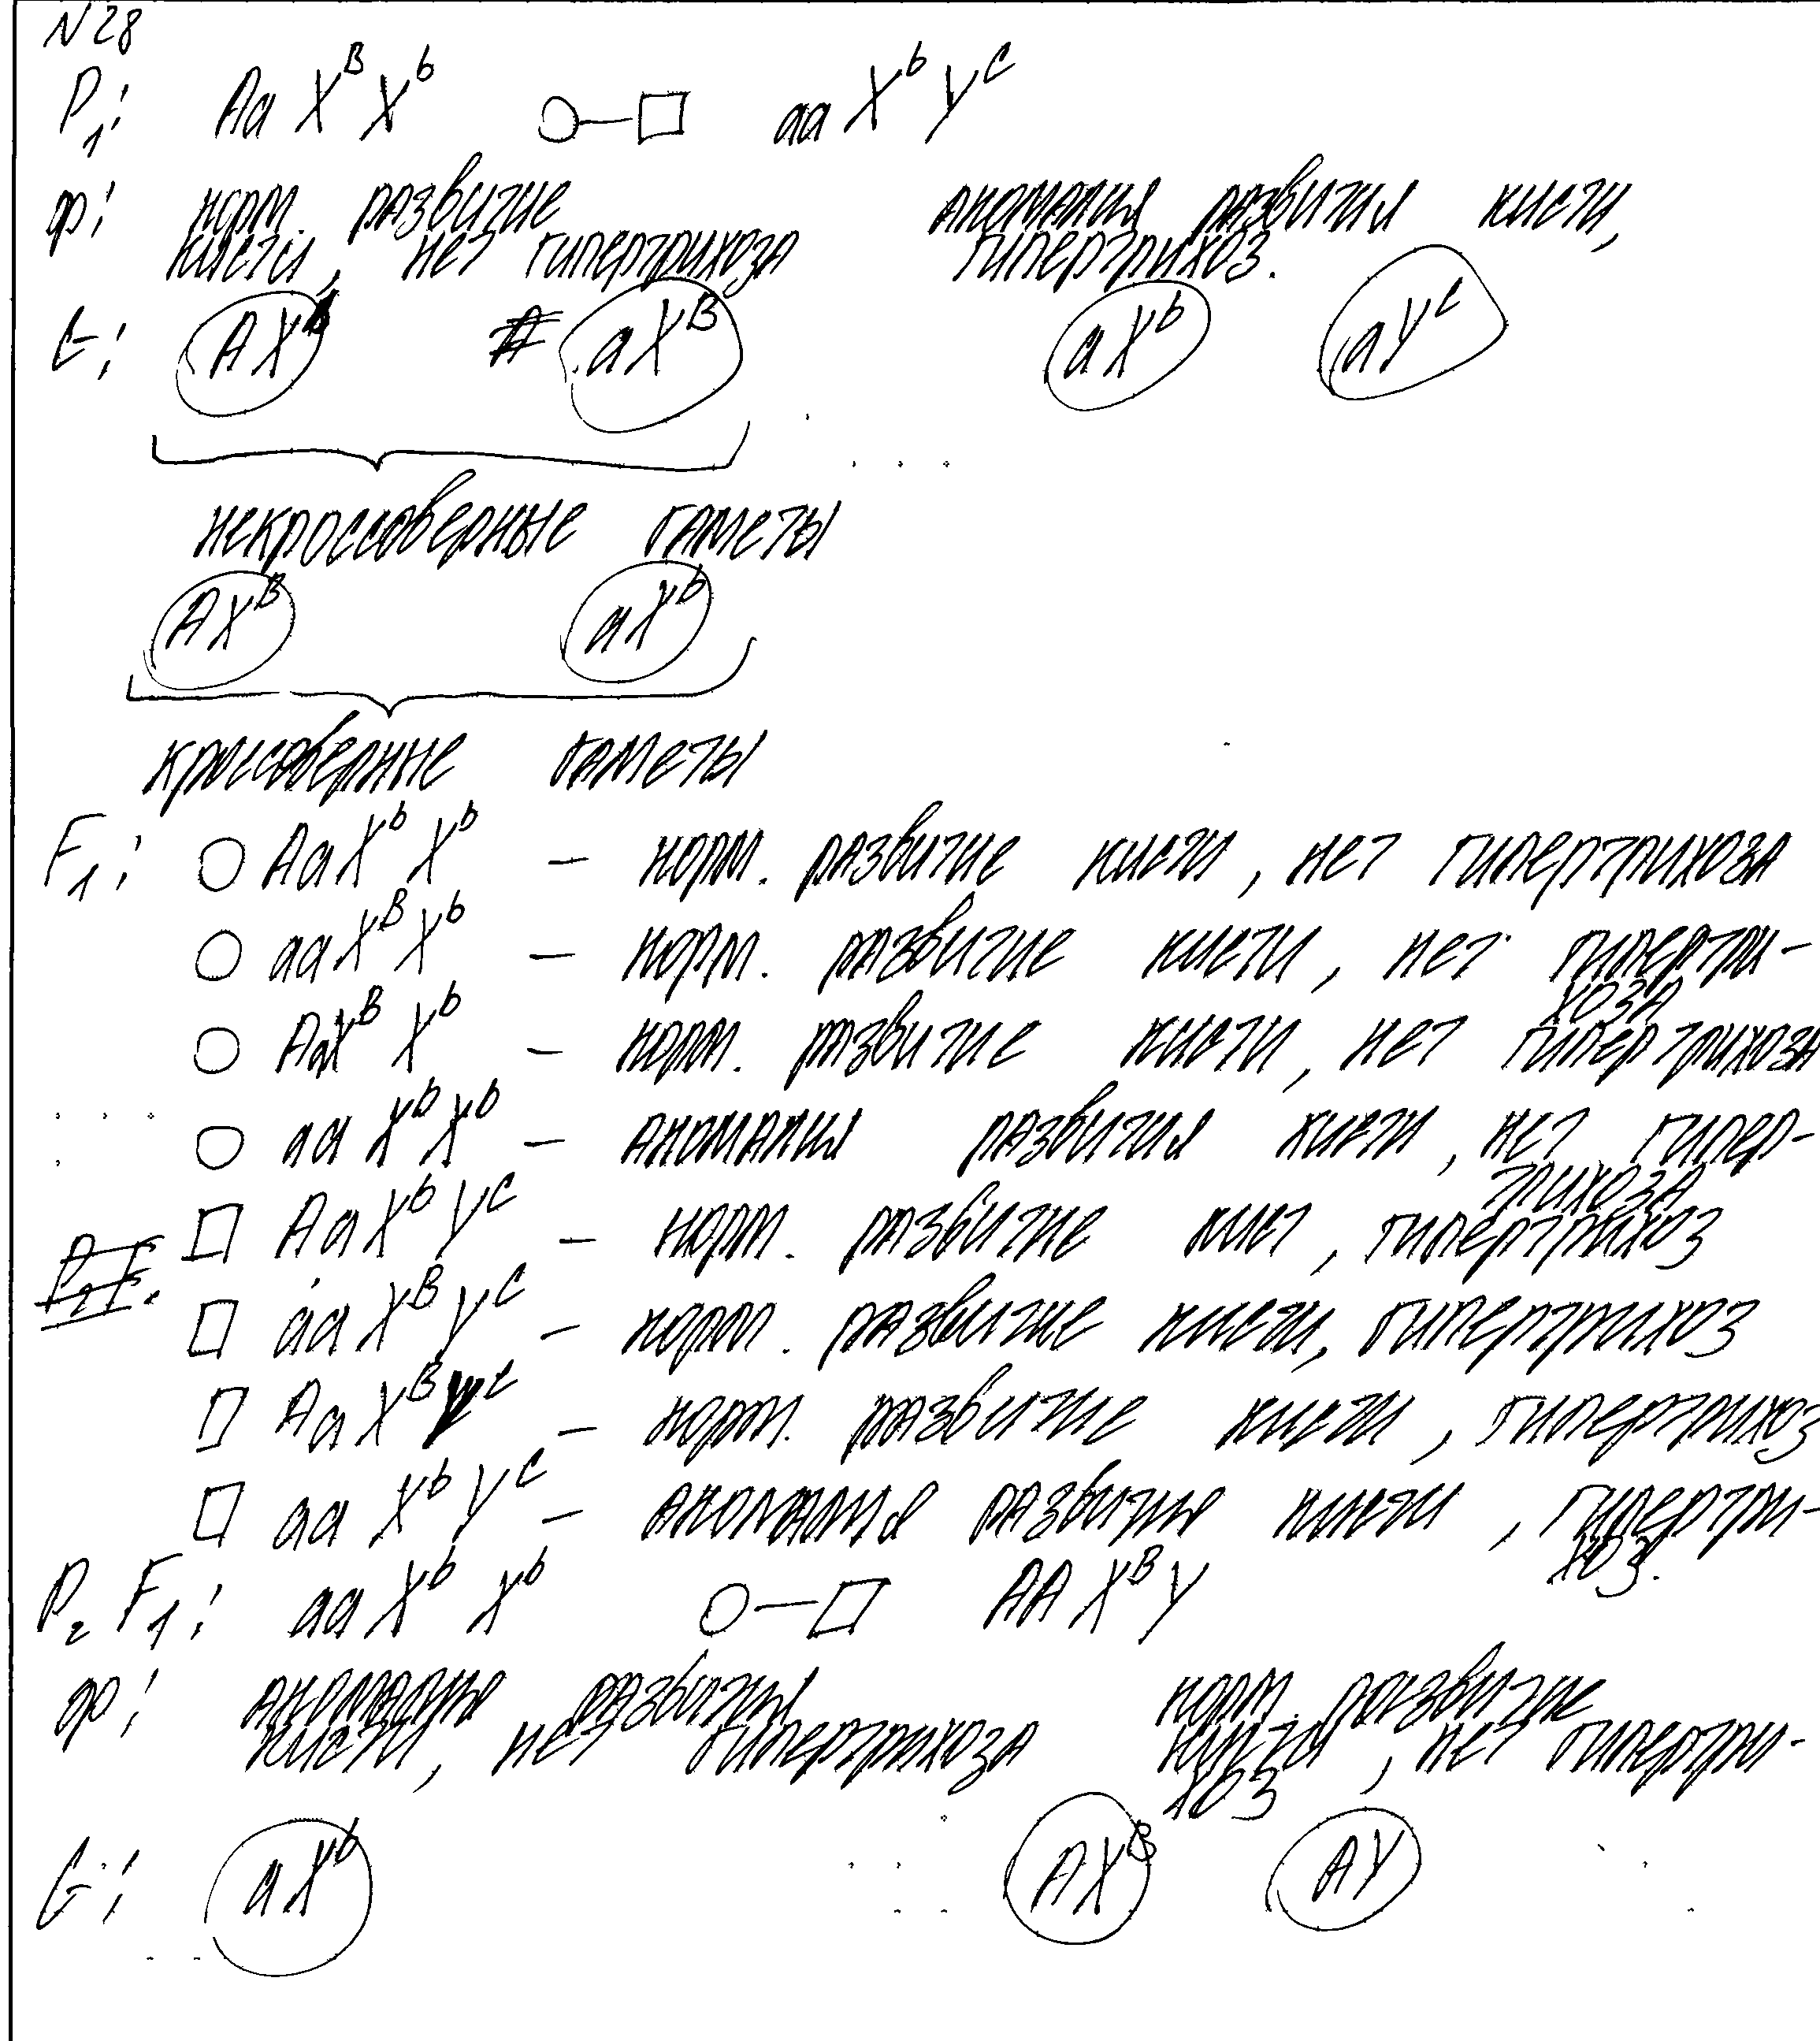 N28
P₁: Aa Xᴮ Xᵇ ○—□ aa Xᵇ Yᶜ
ф: норм. развитие аномалия развития кисти,
кисти, нет гипертрихоза гипертрихоз.
G: AXᵇ aXᴮ aXᵇ aYᶜ
некроссоверные гаметы
AXᴮ aXᵇ
кроссоверные гаметы
F₁: ○ Aa Xᵇ Xᵇ – норм. развитие кисти, нет гипертрихоза
○ aa Xᴮ Xᵇ – норм. развитие кисти, нет гипертри-
хоза
○ Aa Xᴮ Xᵇ – норм. развитие кисти, нет гипертрихоза
○ aa Xᵇ Xᵇ – аномалия развития кисти, нет гипер-
трихоза
□ Aa Xᵇ Yᶜ – норм. развитие кист, гипертрихоз
□ aa Xᴮ Yᶜ – норм. развитие кисти, гипертрихоз
□ Aa Xᴮ Yᶜ – норм. развитие кисти, гипертрихоз
□ aa Xᵇ Yᶜ – аномалия развития кисти, гипертри-
хоз.
P₂ F₁: aa Xᵇ Xᵇ ○—□ AA Xᴮ Y
ф: аномалия развития норм. развитие
кисти, нет гипертрихоза кисти, нет гипертри-
хоз
G: aXᵇ AXᴮ AY